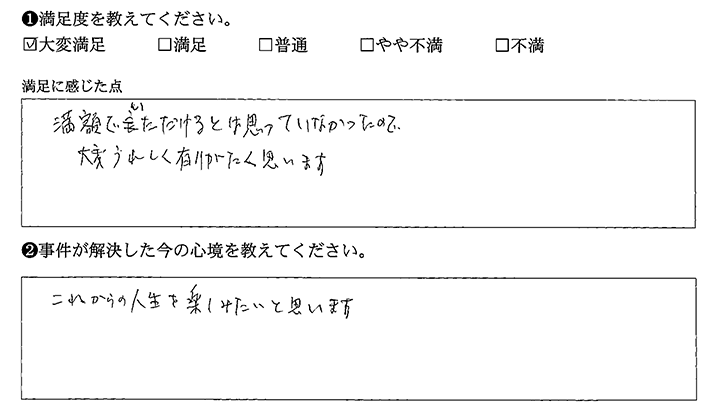 ❶満足度を教えてください。
☑大変満足 □満足 □普通 □やや不満 □不満
満足に感じた点
満額でいただけるとは思っていなかったので
大変うれしく有りがたく思います
❷事件が解決した今の心境を教えてください。
これからの人生を楽しみたいと思います